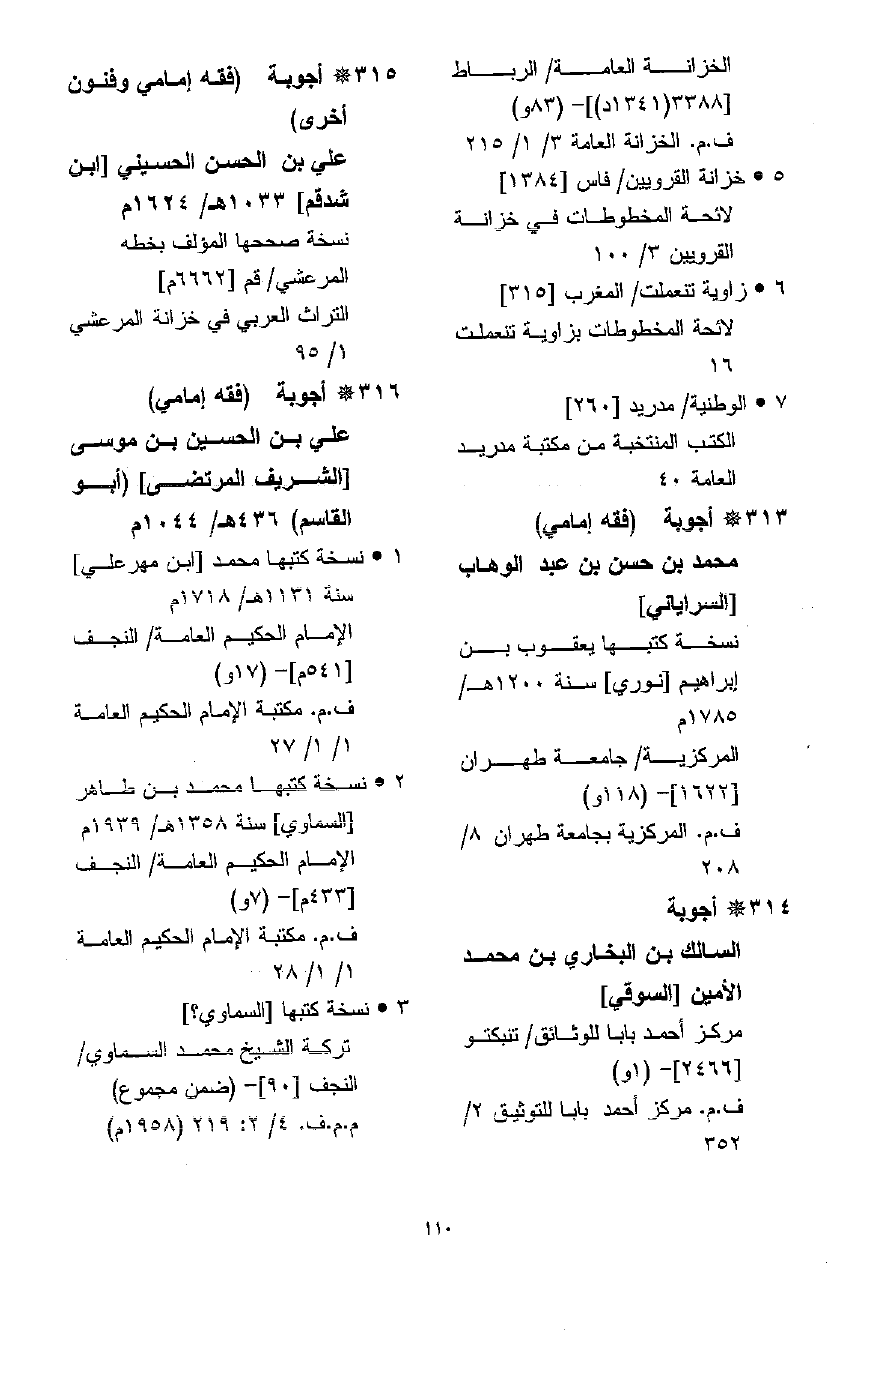 الخزانة العامة/ الرباط
[٣٣٨٨(١٣٤١د)]- (٨٣و)
ف.م. الخزانة العامة ٣/ ١/ ٢١٥
٥ • خزانة القرويين/ فاس [١٣٨٤]
لائحة المخطوطات في خزانة
القرويين ٣/ ١٠٠
٦ • زاوية تنعملت/ المغرب [٣١٥]
لائحة المخطوطات بزاوية تنعملت
١٦
٧ • الوطنية/ مدريد [٢٦٠]
الكتب المنتخبة من مكتبة مدريد
العامة ٤٠
٣١٣❋ أجوبة (فقه إمامي)
محمد بن حسن بن عبد الوهاب
[السراياني]
نسخة كتبها يعقوب بن
إبراهيم [نوري] سنة ١٢٠٠هـ/
١٧٨٥م
المركزية/ جامعة طهران
[١٦٢٢]- (١١٨و)
ف.م. المركزية بجامعة طهران ٨/
٢٠٨
٣١٤❋ أجوبة
السالك بن البخاري بن محمد
الأمين [السوقي]
مركز أحمد بابا للوثائق/ تنبكتو
[٢٤٦٦]- (١و)
ف.م. مركز أحمد بابا للتوثيق ٢/
٣٥٢
٣١٥❋ أجوبة (فقه إمامي وفنون
أخرى)
علي بن الحسن الحسيني [ابن
شدقم] ١٠٣٣هـ/ ١٦٢٤م
نسخة صححها المؤلف بخطه
المرعشي/ قم [٦٦٦٢م]
التراث العربي في خزانة المرعشي
١/ ٩٥
٣١٦❋ أجوبة (فقه إمامي)
علي بن الحسين بن موسى
[الشريف المرتضى] (أبو
القاسم) ٤٣٦هـ/ ١٠٤٤م
١ • نسخة كتبها محمد [ابن مهرعلي]
سنة ١١٣١هـ/ ١٧١٨م
الإمام الحكيم العامة/ النجف
[٥٤١م]- (١٧و)
ف.م. مكتبة الإمام الحكيم العامة
١/ ١/ ٢٧
٢ • نسخة كتبها محمد بن طاهر
[السماوي] سنة ١٣٥٨هـ/ ١٩٣٩م
الإمام الحكيم العامة/ النجف
[٤٣٣م]- (٧و)
ف.م. مكتبة الإمام الحكيم العامة
١/ ١/ ٢٨
٣ • نسخة كتبها [السماوي؟]
تركة الشيخ محمد السماوي/
النجف [٩٠]- (ضمن مجموع)
م.م.ف. ٤/ ٢: ٢١٩ (١٩٥٨م)
١١٠